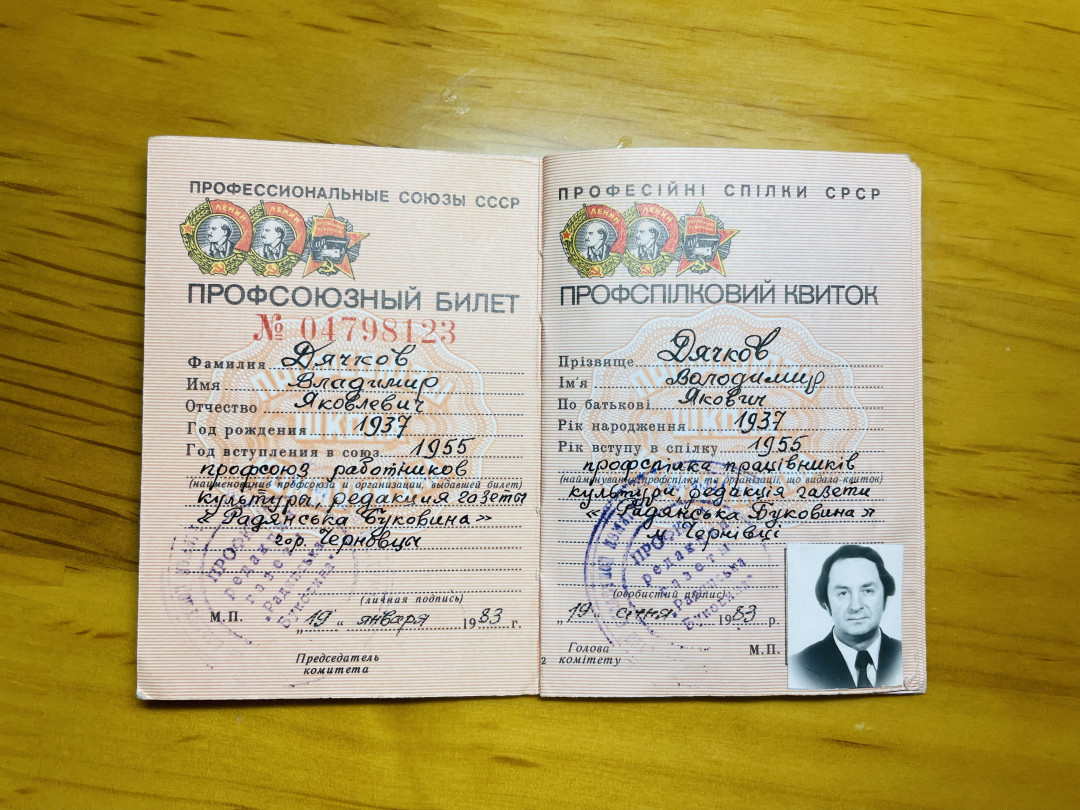 ПРОФЕССИОНАЛЬНЫЕ СОЮЗЫ СССР
ЛЕНИН ЛЕНИН
ПРОФСОЮЗНЫЙ БИЛЕТ
№ 04798123
Фамилия Дячков
Имя Владимир
Отчество Яковлевич
Год рождения 1937
Год вступления в союз 1955
профсоюз работников
(наименование профсоюза и организации, выдавшей билет)
культуры, редакция газеты
«Радянська Буковина»
гор. Черновцы
(личная подпись)
М.П. „19" января 1983 г.
Председатель
комитета
редакции
газети
"Радянська
Буковина"
ПРОФЕСІЙНІ СПІЛКИ СРСР
ЛЕНИН ЛЕНИН
ПРОФСПІЛКОВИЙ КВИТОК
Прізвище Дячков
Ім'я Володимир
По батькові Якович
Рік народження 1937
Рік вступу в спілку 1955
профспілка працівників
(найменування профспілки та організації, що видала квиток)
культури, редакція газети
«Радянська Буковина»
м. Чернівці
(особистий підпис)
„19" січня 1983 р.
Голова
комітету
М.П.
2
газети
"Радянська
Буковина"